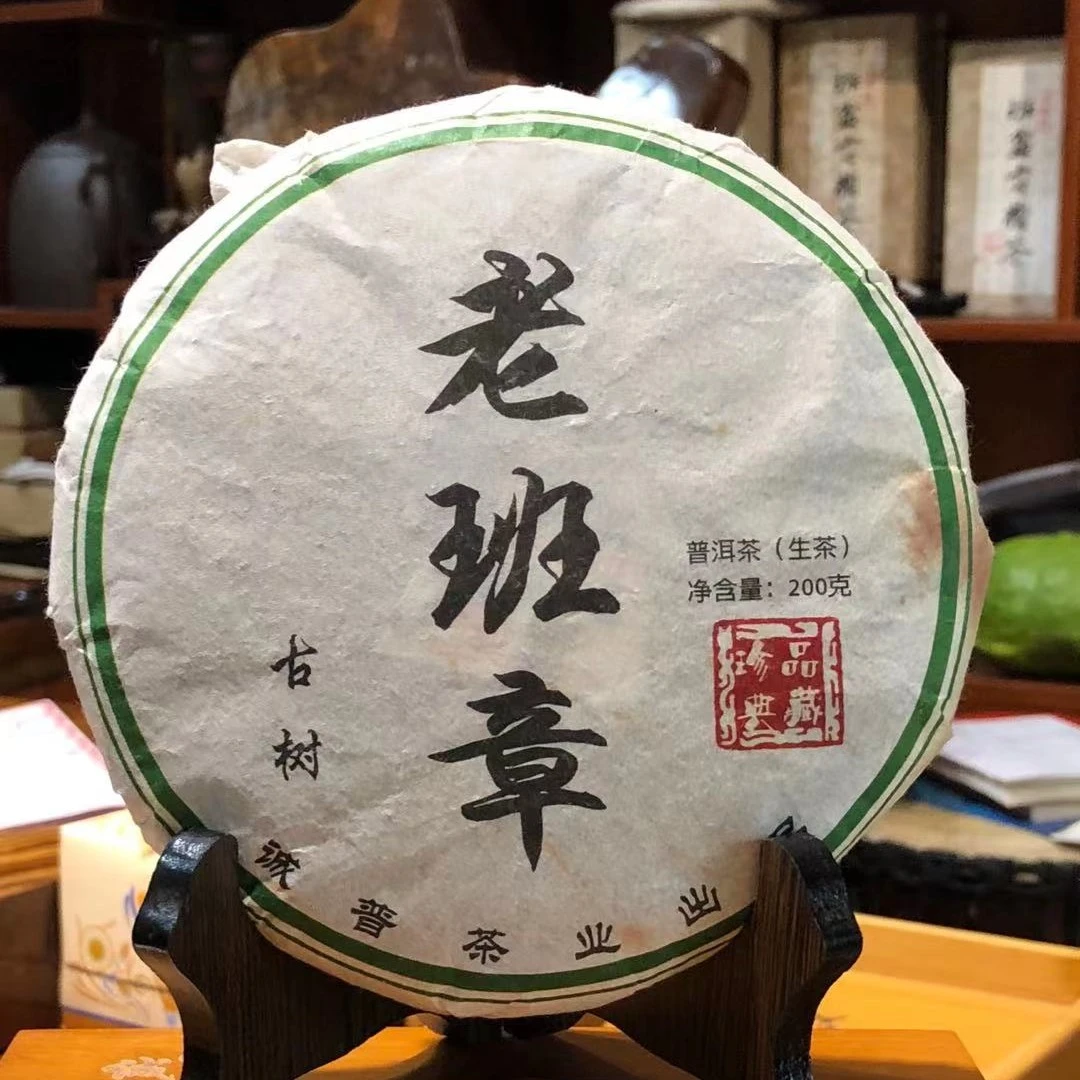 老班章
普洱茶（生茶）
净含量：200克
品藏
珍典
古树
诚普茶业出